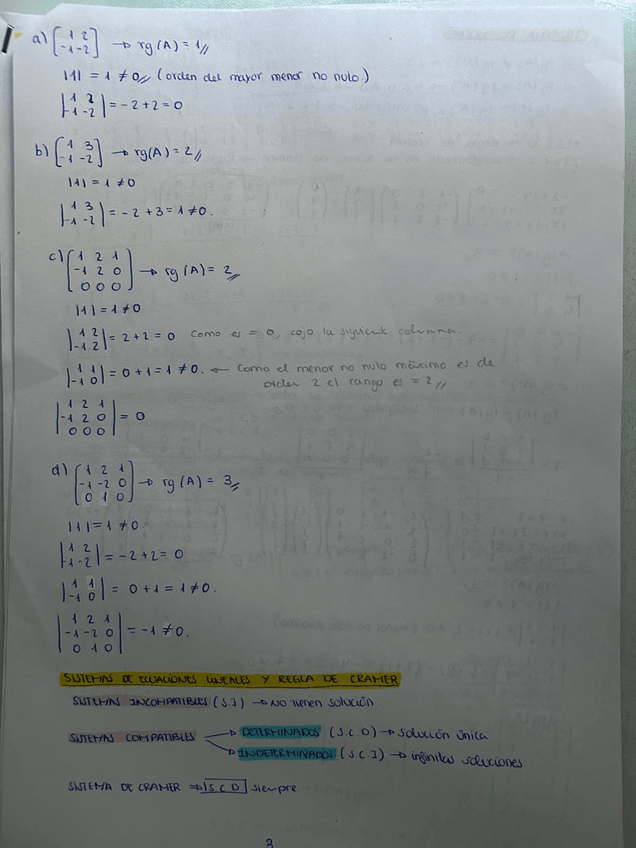 a) [1 2 / -1 -2] → rg(A) = 1//
|1| = 1 ≠ 0// (orden del mayor menor no nulo.)
|1 2 / -1 -2| = -2+2 = 0
b) [1 3 / -1 -2] → rg(A) = 2//
|1| = 1 ≠ 0
|1 3 / -1 -2| = -2+3 = 1 ≠ 0.
c) [1 2 1 / -1 2 0 / 0 0 0] → rg(A) = 2//
|1| = 1 ≠ 0
|1 2 / -1 2| = 2+2 = 0 Como es = 0, cojo la siguiente columna.
|1 1 / -1 0| = 0+1 = 1 ≠ 0. ← Como el menor no nulo máximo es de
orden 2 el rango es = 2//
|1 2 1 / -1 2 0 / 0 0 0| = 0
d) [1 2 1 / -1 -2 0 / 0 1 0] → rg(A) = 3//
|1| = 1 ≠ 0.
|1 2 / 1 -2| = -2+2 = 0
|1 1 / -1 0| = 0+1 = 1 ≠ 0.
|1 2 1 / -1 -2 0 / 0 1 0| = -1 ≠ 0.
SISTEMAS DE ECUACIONES LINEALES Y REGLA DE CRAMER
SISTEMAS INCOMPATIBLES (S.I) → NO tienen solución
SISTEMAS COMPATIBLES → DETERMINADOS (S.C.D) → solución única
→ INDETERMINADOS (S.C.I) → infinitas soluciones
SISTEMA DE CRAMER ⇒ S.C.D siempre